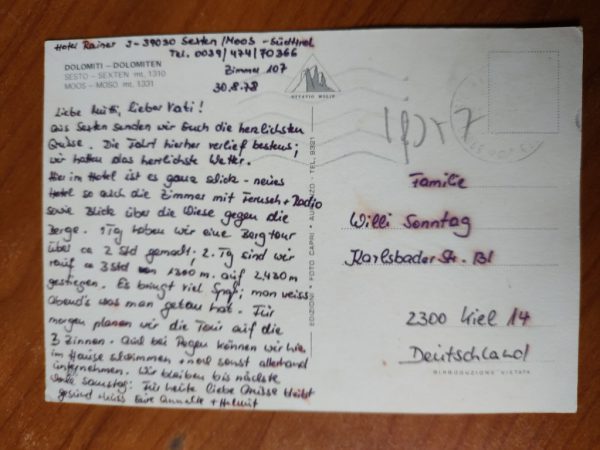 Hotel Rainer I-39030 Sexten/Moos - Südtirol
Tel. 0039/474/70366
Zimmer 107
30.8.78
DOLOMITI - DOLOMITEN
SESTO - SEXTEN mt. 1310
MOOS - MOSO mt. 1331
Liebe Mutti, lieber Vati!
aus Sexten senden wir Euch die herzlichsten
Grüsse. Die Fahrt hierher verlief bestens;
wir hatten das herrlichste Wetter.
Hier im Hotel ist es ganz schick - neues
Hotel so auch die Zimmer mit Fernseh + Radio
sowie Blick über die Wiese gegen die
Berge. 1 Tg haben wir eine Bergtour
über ca 2 Std gemacht; 2. Tg sind wir
rauf ca 3 Std von 1300 m. auf 2.430 m
gestiegen. Es bringt viel Spaß; man weiss
Abends was man getan hat. Für
morgen planen wir die Tour auf die
3 Zinnen. Auch bei Regen können wir hier
im Hause schwimmen + noch sonst allerhand
unternehmen. Wir bleiben bis nächste
Woche Samstag. Für heute liebe Grüsse bleibt
gesund Eure Annette + Helmut
EDIZIONI FOTO CAPRI AURONZO - TEL. 9321
Familie
Willi Sonntag
Karlsbader Str. 81
2300 Kiel 14
Deutschland
RIPRODUZIONE VIETATA